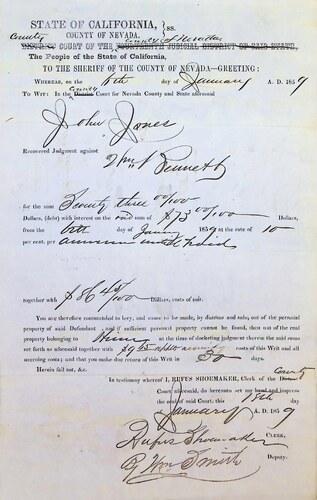 STATE OF CALIFORNIA, } ss.
County COUNTY OF NEVADA.
DISTRICT COURT OF THE FOURTEENTH JUDICIAL DISTRICT OF SAID STATE, County of Nevada
The People of the State of California,
TO THE SHERIFF OF THE COUNTY OF NEVADA—GREETING:
WHEREAS, on the 6th day of January A. D. 1859
To Wit: In the District County Court for Nevada County and State aforesaid
John Jones
Recovered Judgment against
Wm Bennett
for the sum Seventy three 00/100
Dollars, (debt) with interest on the said sum of $73 00/100 Dollars,
from the 6th day of January 1859 at the rate of 10
per cent. per annum until paid
together with $86 45/100 Dollars, costs of suit.
You are therefore commanded to levy, and cause to be made, by distress and sale, out of the personal
property of said Defendant, and if sufficient personal property cannot be found, then out of the real
property belonging to at the time of docketing judgment therein the said sum
set forth as aforesaid together with $9 25 costs of this Writ and all
accruing costs; and that you make due return of this Writ in 30 days.
Herein fail not, &c.
In testimony whereof I, RUFUS SHOEMAKER, Clerk of the County
Court aforesaid, do hereunto set my hand and impress
the seal of said Court, this 18th day
January A.D. 1859
Rufus Shoemaker CLERK,
By Wm Smith Deputy.